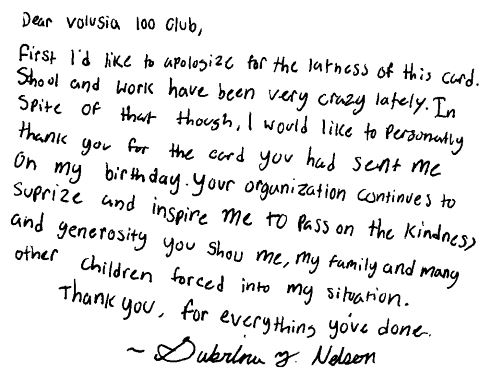 Dear Volusia 100 Club,
First I'd like to apologize for the latness of this card.
Shool and work have been very crazy lately. In
spite of that though, I would like to personally
thank you for the card you had sent me
on my birthday. Your organization continues to
suprize and inspire me to pass on the kindness,
and generosity you show me, my family and many
other children forced into my situation.
Thank you, for everything you've done.
~ Nelson